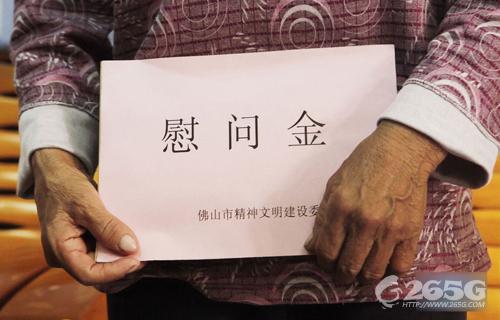 慰问金
佛山市精神文明建设委
265G
HTTP://WWW.265G.COM